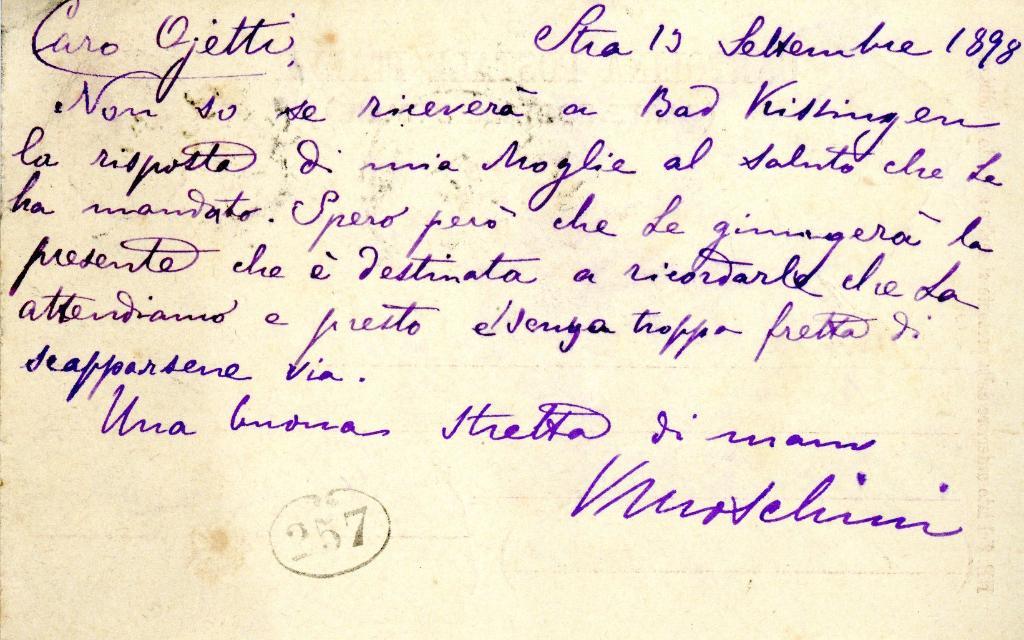 Caro Ojetti, Stra 13 Settembre 1898
Non so se riceverà a Bad Kissingen
la risposta di mia Moglie al saluto che Le
ha mandato. Spero però che Le giungerà la
presente che è destinata a ricordarle che La
attendiamo e presto e senza troppa fretta di
scapparsene via.
Una buona stretta di mano
VMoschini
257